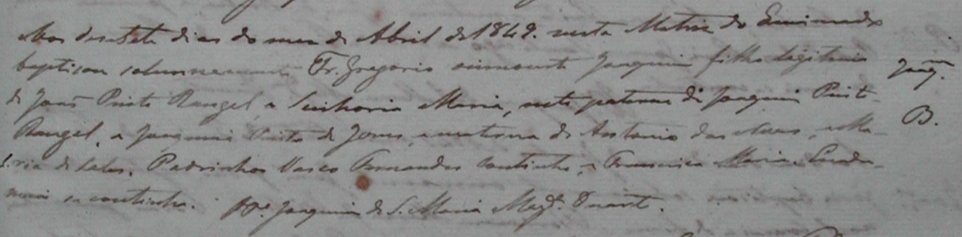 Aos desasete dias do mes de Abril de 1842. nesta Matriz do Queimado
baptisou solemnemente Fr. Gregorio innocente Joaquim filho legitimo
de João Pinto Rangel, e Maria, neto paterno de Joaquim Pinto
Rangel, e Joaquina Pinto de Jesus, e materno de Antonio das Neves, e Ma-
ria de Sales. Padrinhos Vasco Fernandes Coutinho, e Francisca Maria
Coutinho. Joaquim de S. Maria Magd. Duarte.
Joaq.
B.